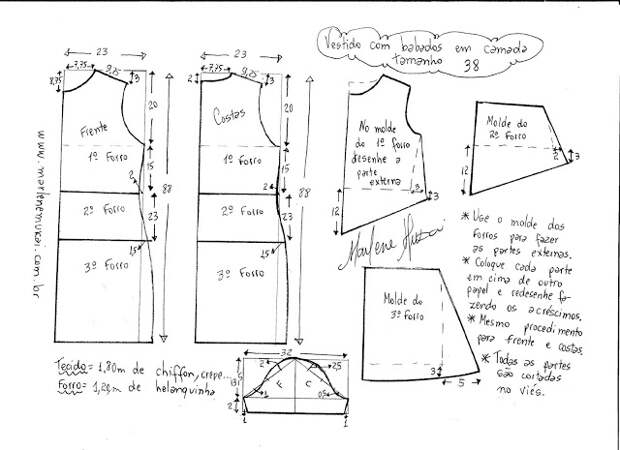 Vestido com babados em camada
tamanho 38
23
7,75
9,25
3
8,75
20
Frente
1º Forro
15
2
88
2º Forro
23
2,5
3º Forro
23
7,75
9,25
2
3
20
Costas
1º Forro
15
2
88
2º Forro
23
2,5
3º Forro
No molde
do 1º forro
desenhe a
parte
externa
3
3
12
Molde do
2º Forro
2
3
12
Marlene Mukai
Molde do
3º Forro
3
5
* Use o molde dos
forros para fazer
as partes externas.
* Coloque cada parte
em cima de outro
papel e redesenhe fa-
zendo os acréscimos.
* Mesmo procedimento
para frente e costas.
* Todas as partes
são cortadas
no viés.
Tecido = 1,80m de chiffon, crepe...
Forro = 1,20m de helanquinha
32
2
2,5
F
C
1
0,5
2
1
1
www.marlenemukai.com.br